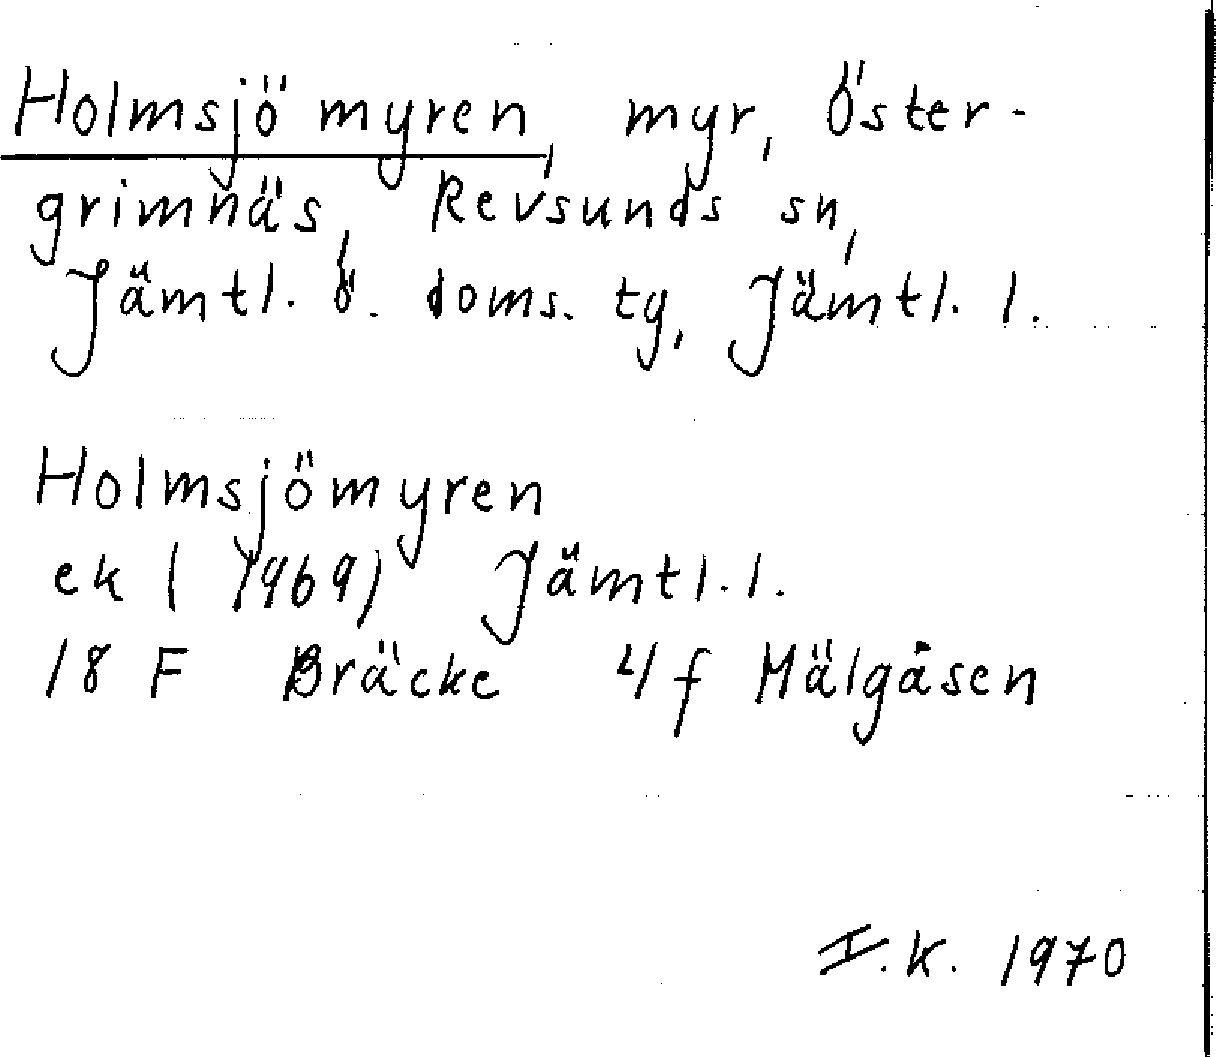 Holmsjömyren, myr, Öster-
grimnäs, Revsunds sn,
Jämtl. ö. doms. tg, Jämtl. l.
Holmsjömyren
ek (1969) Jämtl. l.
18 F Bräcke 4f Mälgåsen
I.K. 1970